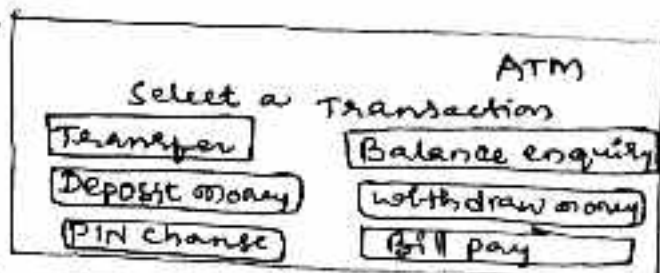 ATM
Select a Transaction
Transfer
Balance enquiry
Deposit money
withdraw money
PIN change
Bill pay